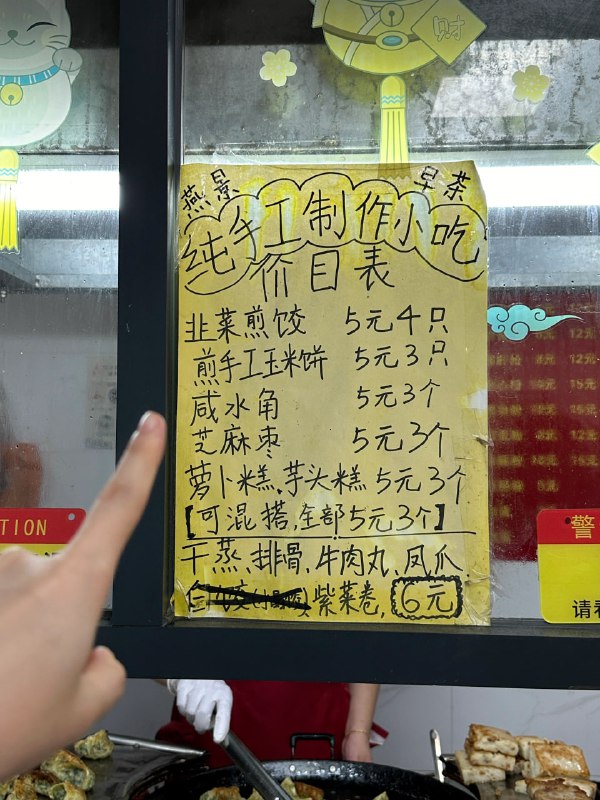 财
燕景 早茶
纯手工制作小吃
价目表
韭菜煎饺 5元4只
煎手工玉米饼 5元3只
咸水角 5元3个
芝麻枣 5元3个
萝卜糕、芋头糕 5元3个
【可混搭,全部5元3个】
干蒸、排骨、牛肉丸、凤爪
紫菜卷, 6元
TION
警
请看
12元
15元